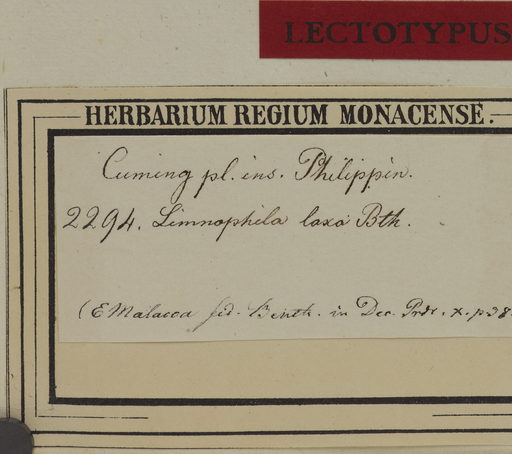 LECTOTYPUS
HERBARIUM REGIUM MONACENSE.
Cuming pl. ins. Philippin.
2294. Limnophila laxa Bth.
(E Malacca fid. Benth. in Dec. Prdr. x. p. 38